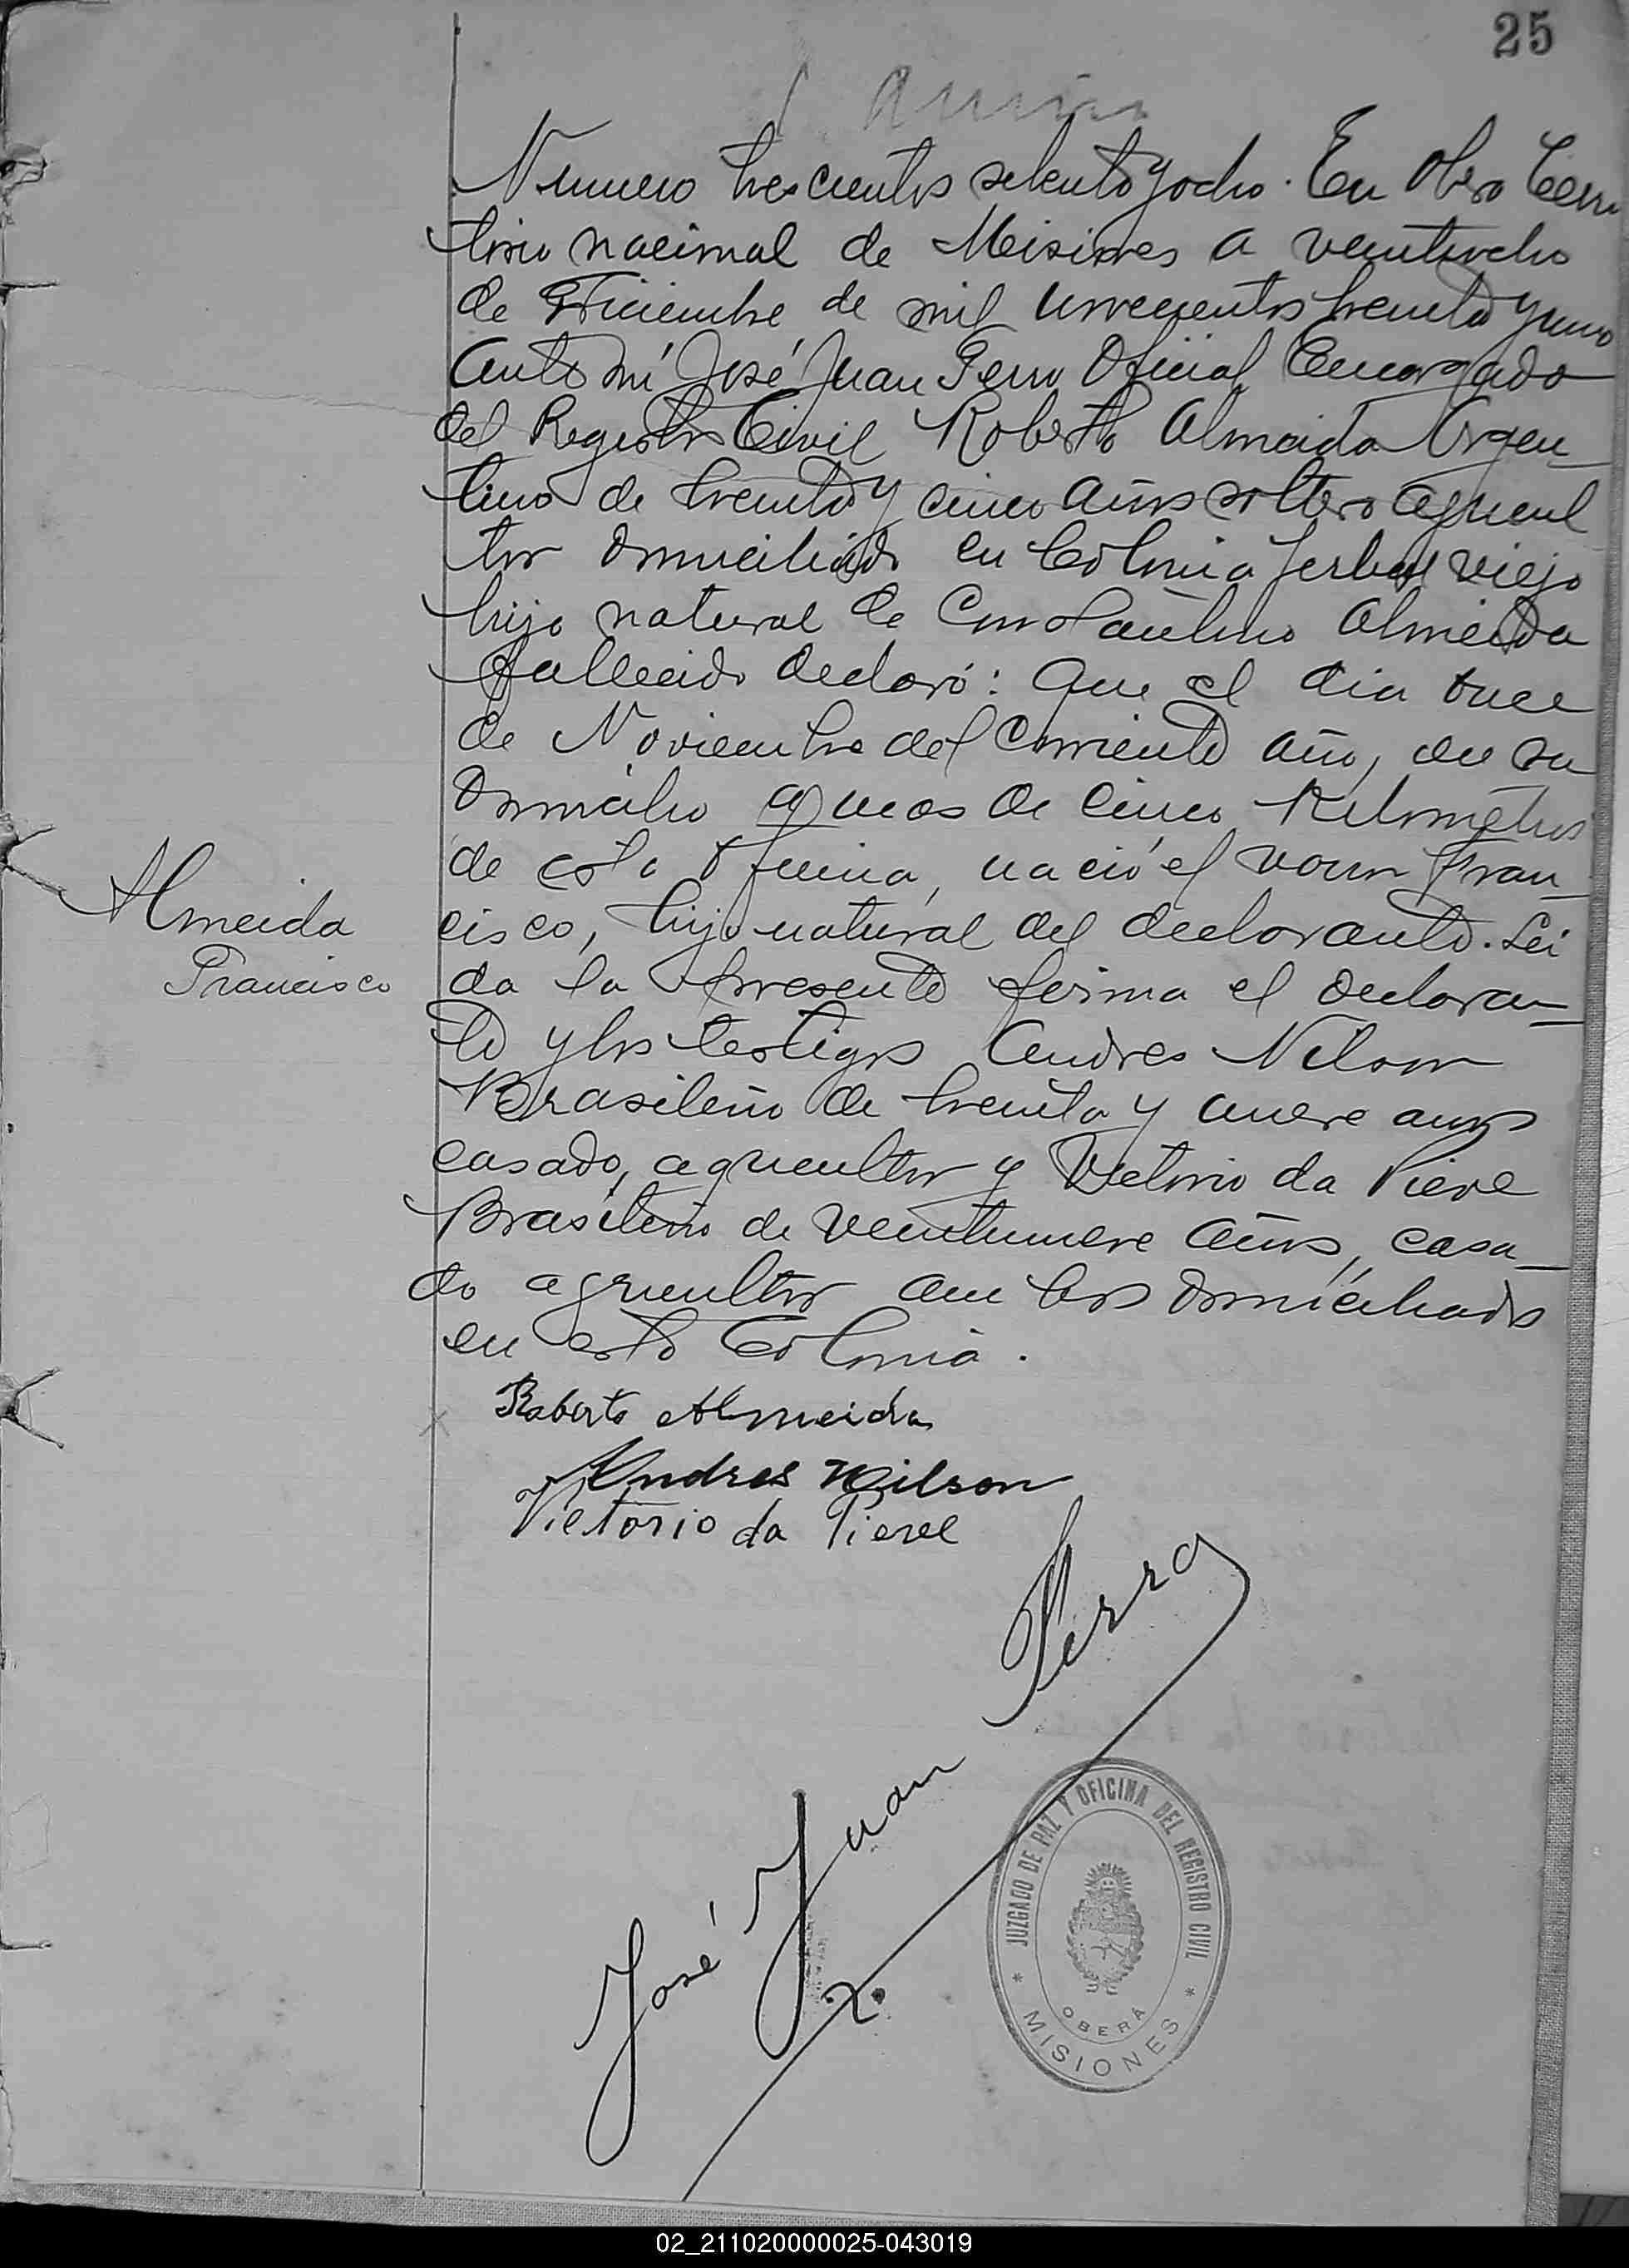 25
Numero trescientos setenta y ocho. En Obera Terri
torio nacional de Misiones a veintiocho
de Diciembre de mil novecientos treinta y uno
Ante mí José Juan Perro Oficial Encargado
del Registro Civil Roberto Almeida Argen
tino de treinta y cinco años soltero agricul
tor domiciliado en Colonia Yerbal Viejo
hijo natural de Constantino Almeida
fallecido declaró: Que el dia once
de Noviembre del corriente año, en su
domicilio a mas de cinco Kilometros
de esta Oficina, nació el varon Fran
cisco, hijo natural del declarante. Lei
Almeida
Francisco
da la presente firma el declaran
te y los testigos Andres Nilson
Brasileño de treinta y nueve años
casado, agricultor y Vietorio da Pieve
Brasileño de veintinueve años, casa
do agricultor ambos domiciliados
en esta Colonia.
Roberto Almeida
Andres Nilson
Vietorio da Pieve
José Juan Perro
JUZGADO DE PAZ Y OFICINA DEL REGISTRO CIVIL
OBERÁ
* MISIONES *
02_211020000025-043019